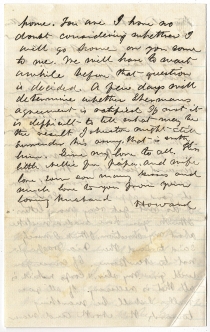 home. You are I have no
doubt considering whether I
will go home, or you come
to me. We will have to wait
awhile before that question
is decided. A few days will
determine whether Shermans
agreement is ratified. If not it
is difficult to tell what may be
the result. Johnston might
surrender his army, that is with
him. Give my love to all. This
little letter for Papa, and wife
love, our son many kisses and
much love to you from your
loving husband
Howard